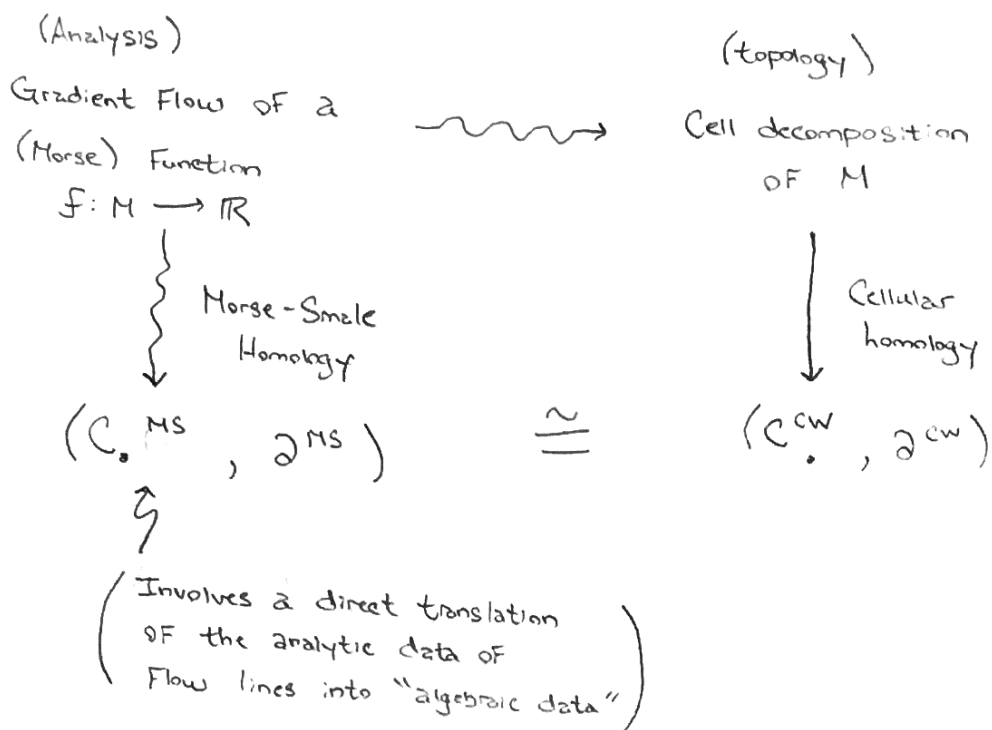 (Analysis)
Gradient Flow of a
(Morse) Function
f: M → ℝ
(topology)
Cell decomposition
of M
Morse-Smale
Homology
Cellular
homology
(C.^MS, ∂^MS) ≅ (C.^CW, ∂^CW)
(Involves a direct translation
of the analytic data of
Flow lines into "algebraic data")